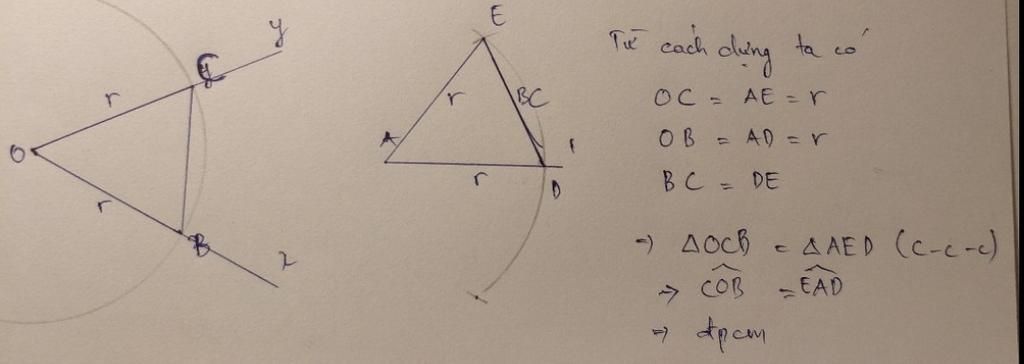 y
C
r
O
r
B
x
E
r
BC
A
r
D
Từ cách dựng ta có
OC = AE = r
OB = AD = r
BC = DE
⇒ ΔOCB = ΔAED (c-c-c)
⇒ \widehat{COB} = \widehat{EAD}
⇒ đpcm